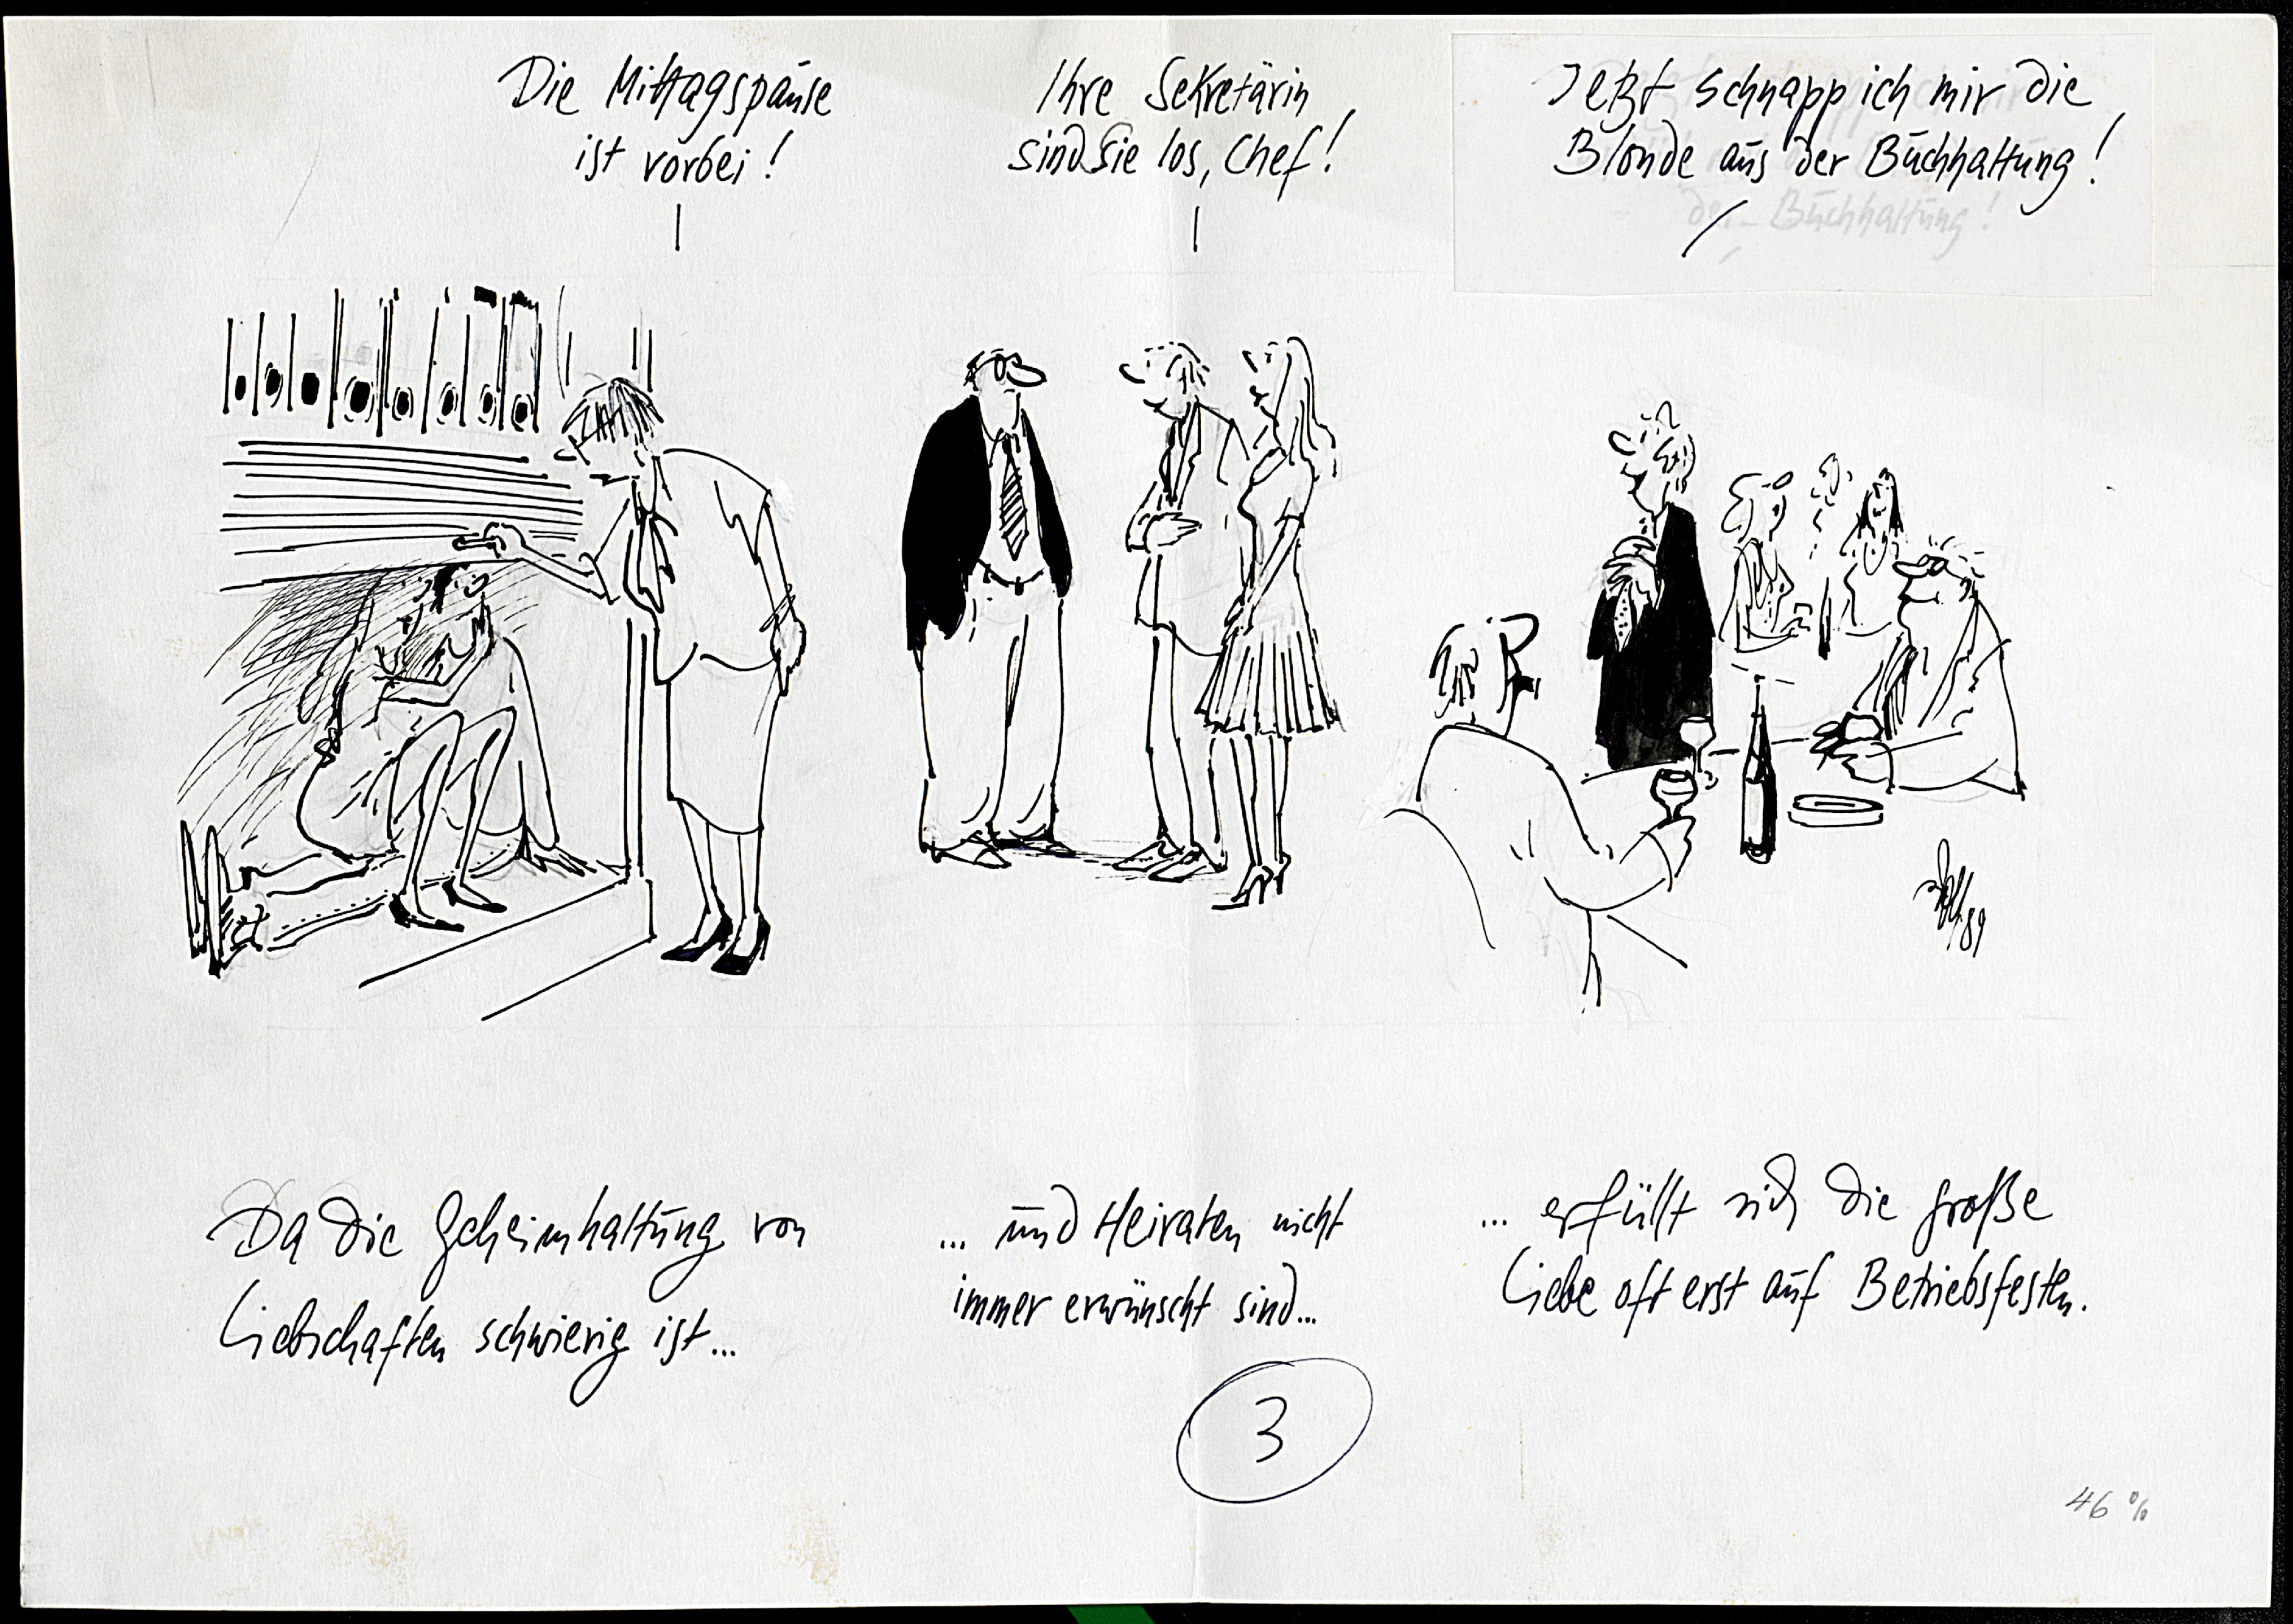 Die Mittagspause
ist vorbei!
Ihre Sekretärin
sind Sie los, Chef!
Jetzt schnapp ich mir die
Blonde aus der Buchhaltung!
der Buchhaltung!
89
Da die Geheimhaltung von
Liebschaften schwierig ist...
... und Heiraten nicht
immer erwünscht sind...
... erfüllt sich die große
Liebe oft erst auf Betriebsfesten.
3
46 %